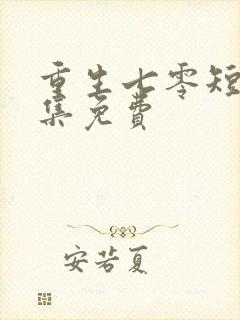 重生七零短
集免费
安若夏